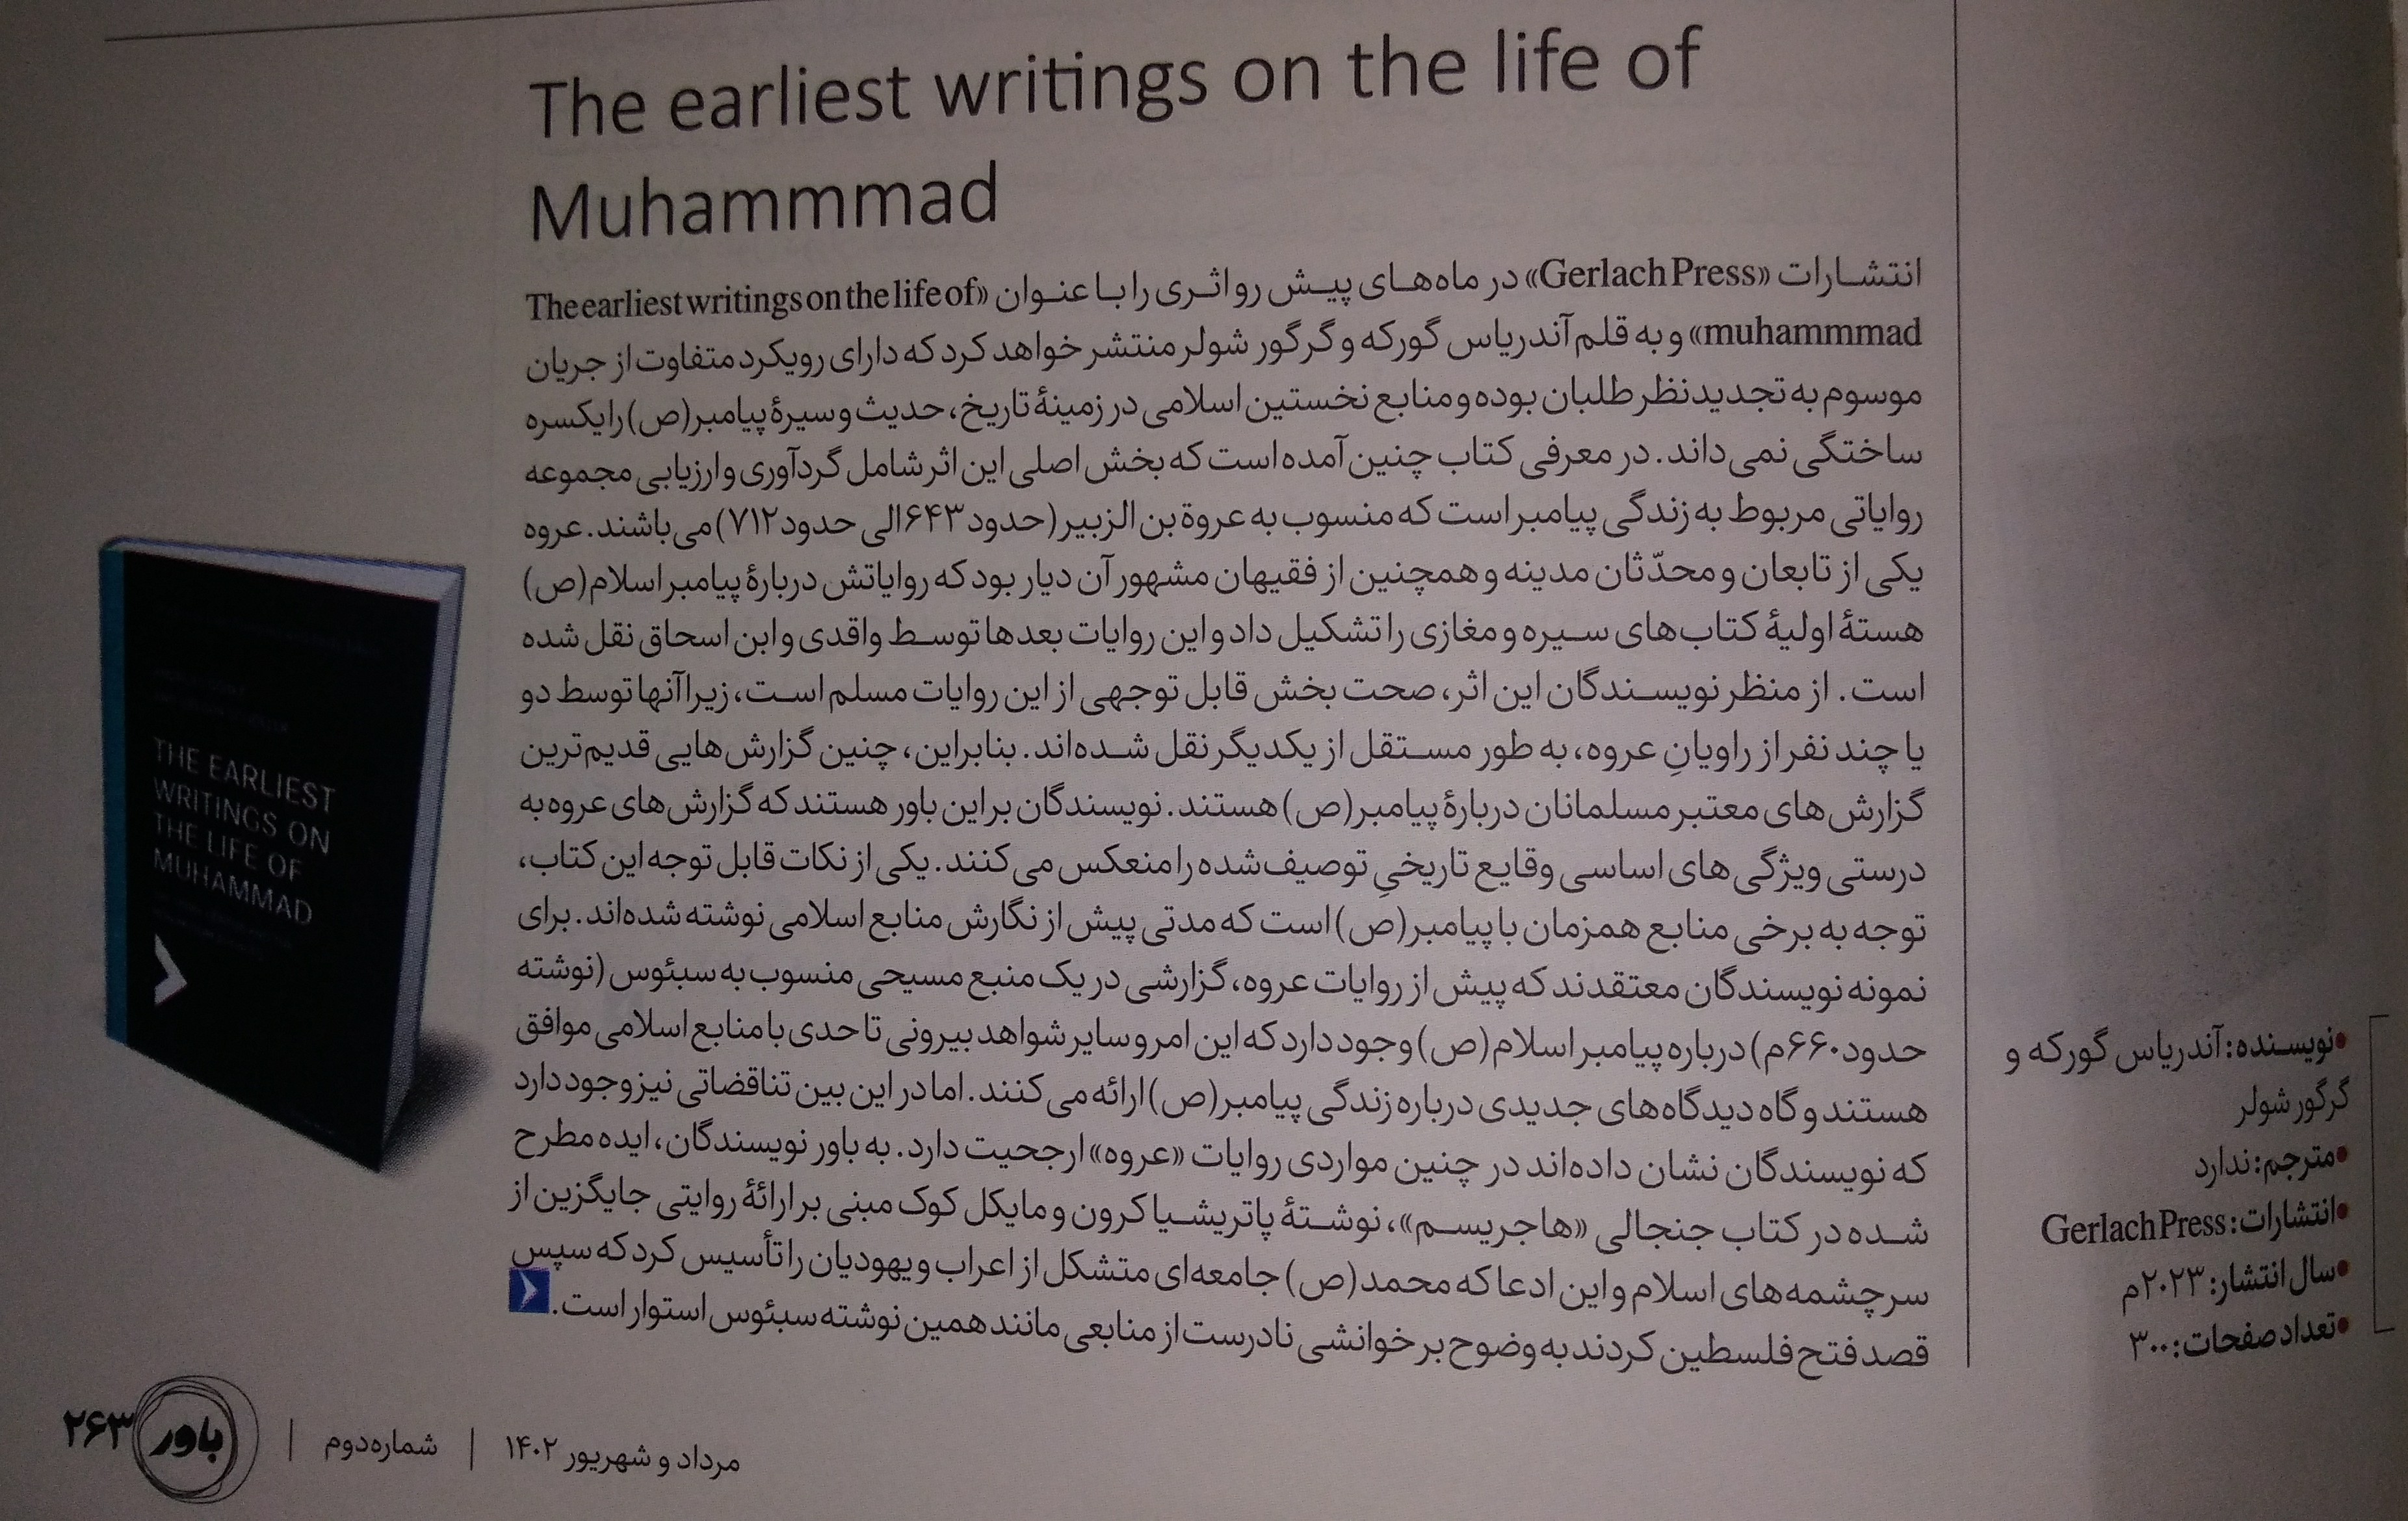 The earliest writings on the life of
Muhammmad
انتشارات «Gerlach Press» در ماه‌های پیش رو اثری را با عنوان «The earliest writings on the life of
muhammmad» و به قلم آندریاس گورکه و گرگور شولر منتشر خواهد کرد که دارای رویکرد متفاوت از جریان
موسوم به تجدیدنظرطلبان بوده و منابع نخستین اسلامی در زمینهٔ تاریخ، حدیث و سیرهٔ پیامبر(ص) را یکسره
ساختگی نمی‌داند. در معرفی کتاب چنین آمده است که بخش اصلی این اثر شامل گردآوری و ارزیابی مجموعه
روایاتی مربوط به زندگی پیامبر است که منسوب به عروة بن الزبیر (حدود ۶۴۳ الی حدود ۷۱۲) می‌باشند. عروه
یکی از تابعان و محدّثان مدینه و همچنین از فقیهان مشهور آن دیار بود که روایاتش دربارهٔ پیامبر اسلام(ص)
هستهٔ اولیهٔ کتاب‌های سیره و مغازی را تشکیل داد و این روایات بعدها توسط واقدی و ابن اسحاق نقل شده
است. از منظر نویسندگان این اثر، صحت بخش قابل توجهی از این روایات مسلم است، زیرا آنها توسط دو
یا چند نفر از راویانِ عروه، به طور مستقل از یکدیگر نقل شده‌اند. بنابراین، چنین گزارش‌هایی قدیم‌ترین
گزارش‌های معتبر مسلمانان دربارهٔ پیامبر(ص) هستند. نویسندگان بر این باور هستند که گزارش‌های عروه به
درستی ویژگی‌های اساسی وقایع تاریخیِ توصیف‌شده را منعکس می‌کنند. یکی از نکات قابل توجه این کتاب،
توجه به برخی منابع همزمان با پیامبر(ص) است که مدتی پیش از نگارش منابع اسلامی نوشته شده‌اند. برای
نمونه نویسندگان معتقدند که پیش از روایات عروه، گزارشی در یک منبع مسیحی منسوب به سبئوس (نوشته
حدود ۶۶۰م) درباره پیامبر اسلام(ص) وجود دارد که این امر و سایر شواهد بیرونی تا حدی با منابع اسلامی موافق
هستند و گاه دیدگاه‌های جدیدی درباره زندگی پیامبر(ص) ارائه می‌کنند. اما در این بین تناقضاتی نیز وجود دارد
که نویسندگان نشان داده‌اند در چنین مواردی روایات «عروه» ارجحیت دارد. به باور نویسندگان، ایده مطرح
شده در کتاب جنجالی «هاجریسم»، نوشتهٔ پاتریشیا کرون و مایکل کوک مبنی بر ارائهٔ روایتی جایگزین از
سرچشمه‌های اسلام و این ادعا که محمد(ص) جامعه‌ای متشکل از اعراب و یهودیان را تأسیس کرد که سپس
قصد فتح فلسطین کردند به وضوح بر خوانشی نادرست از منابعی مانند همین نوشته سبئوس استوار است.
•نویسنده: آندریاس گورکه و
گرگور شولر
•مترجم: ندارد
•انتشارات: Gerlach Press
•سال انتشار: ۲۰۲۳م
•تعداد صفحات: ۳۰۰
THE EARLIEST
WRITINGS ON
THE LIFE OF
MUHAMMAD
مرداد و شهریور ۱۴۰۲ | شماره دوم | باور ۲۶۳